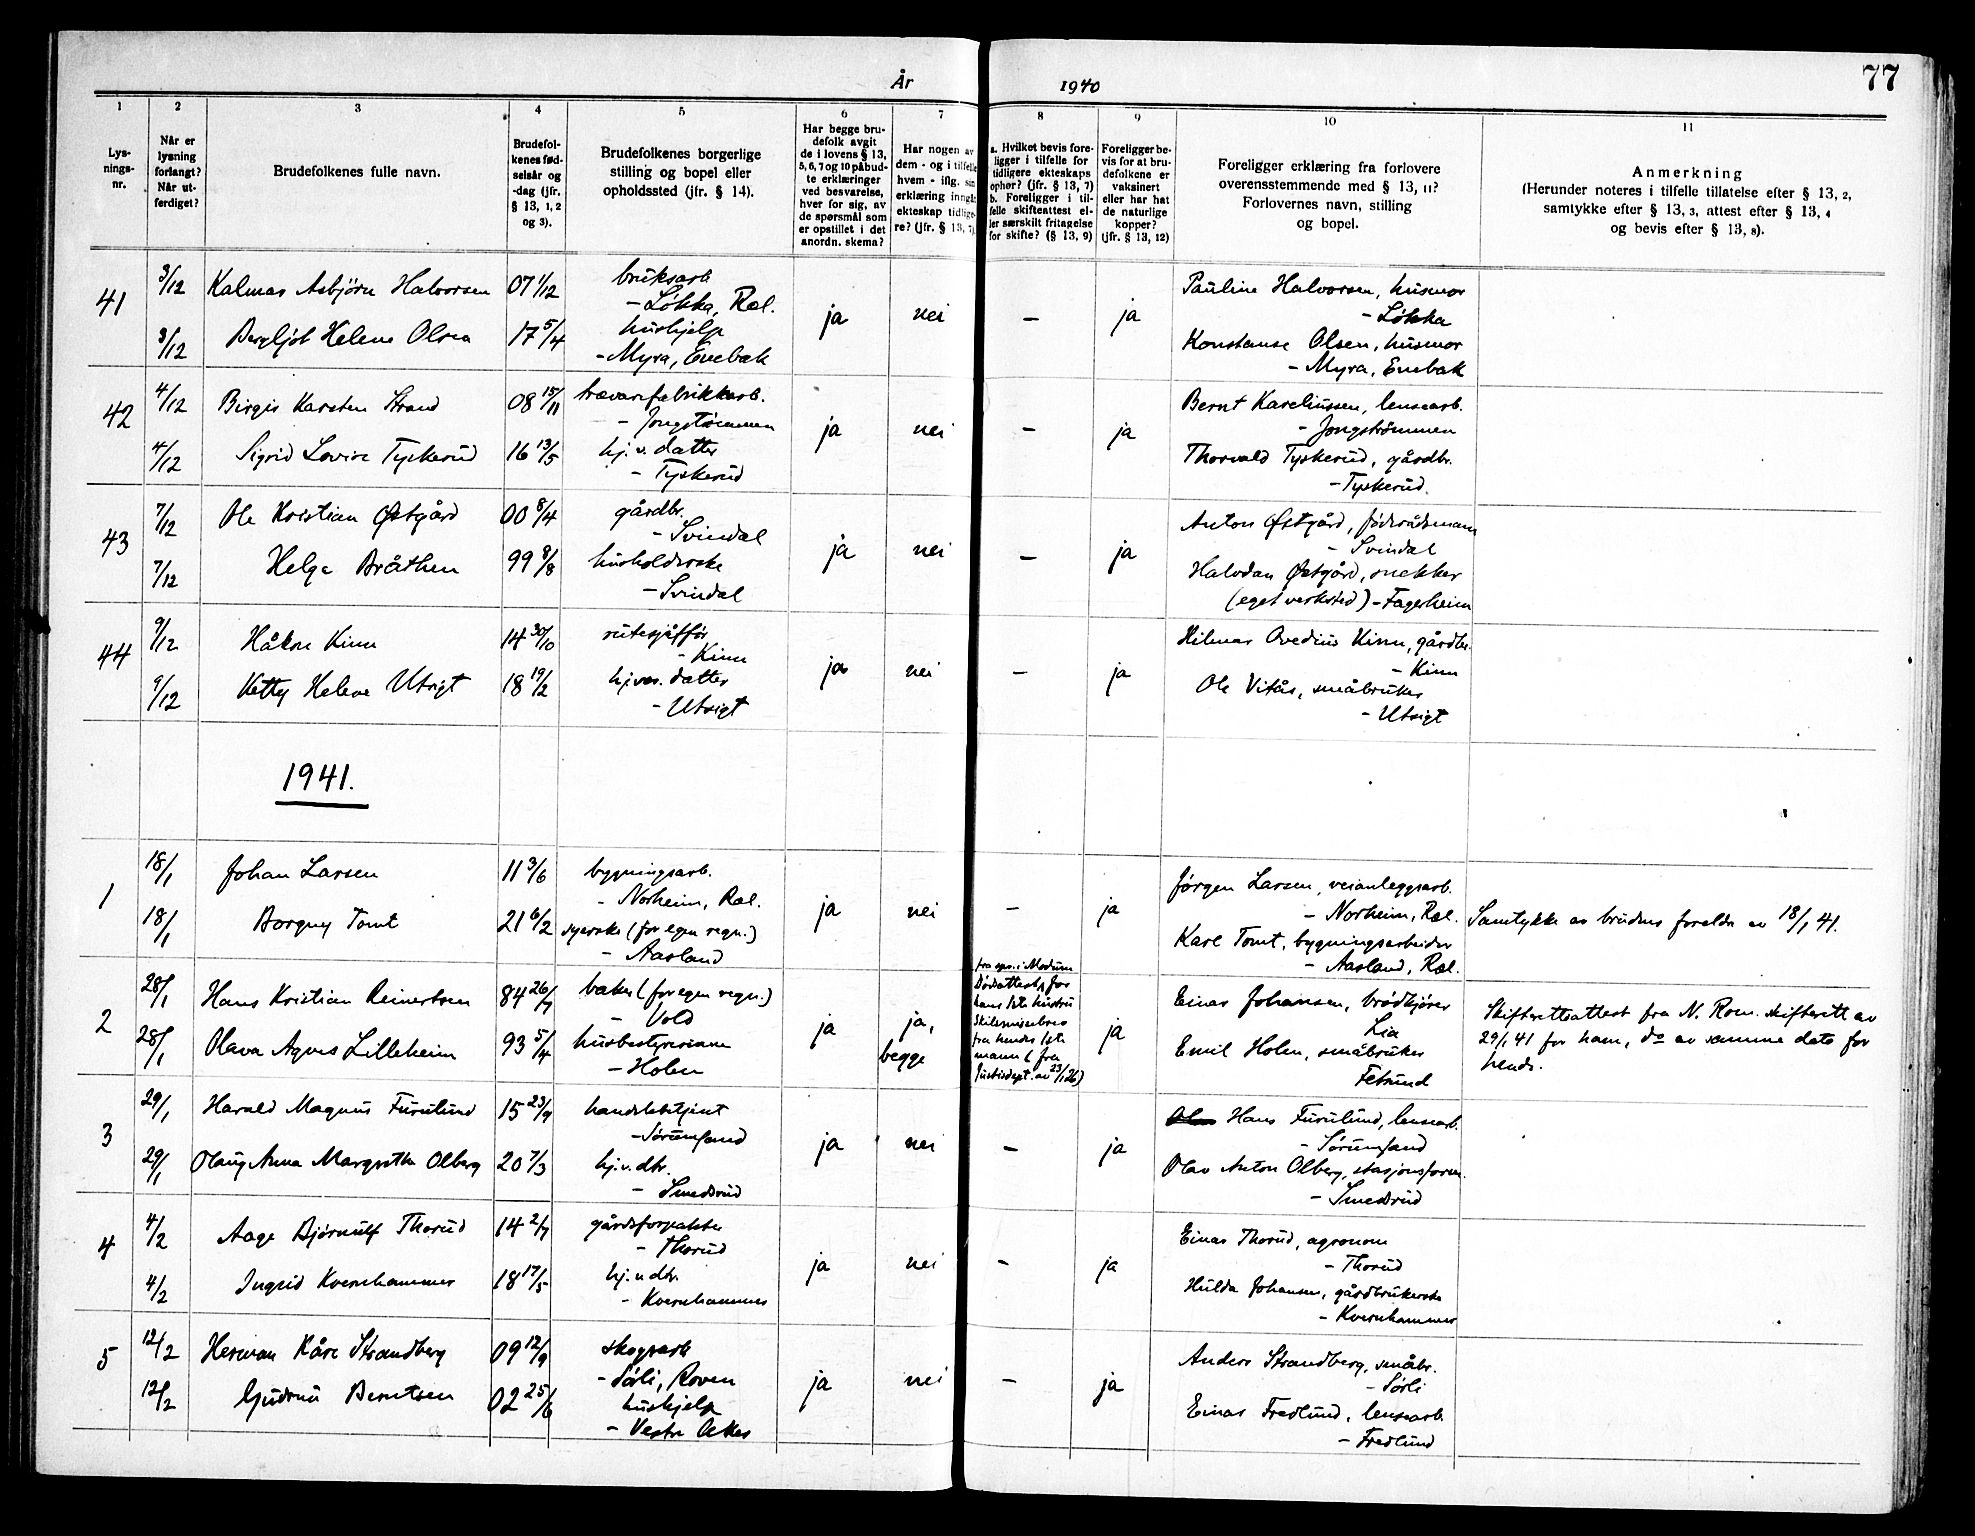 År 1940
77
1 2 3 4 5 6 7 8 9 10 11
Lys-
nings-
nr.
Når er
lysning
forlangt?
Når ut-
ferdiget?
Brudefolkenes fulle navn.
Brudefol-
kenes fød-
selsår og
-dag (jfr.
§ 13, 1, 2
og 3).
Brudefolkenes borgerlige
stilling og bopel eller
opholdssted (jfr. § 14).
Har begge bru-
defolk avgit
de i lovens § 13,
5, 6, 7 og 10 påbud-
te erklæringer
ved besvarelse,
hver for sig, av
de spørsmål som
er opstillet i det
anordn. skema?
Har nogen av
dem - og i tilfelle
hvem - iflg. sin
erklæring inngåt
ekteskap tidlige-
re? (jfr. § 13, 7)
a. Hvilket bevis fore-
ligger i tilfelle for
tidligere ekteskaps
ophør? (jfr. § 13, 7)
b. Foreligger i til-
felle skifteattest el-
ler særskilt fritagelse
for skifte? (§ 13, 9)
Foreligger be-
vis for at bru-
defolkene er
vaksinert
eller har hat
de naturlige
kopper?
(jfr. § 13, 12)
Foreligger erklæring fra forlovere
overensstemmende med § 13, 11?
Forlovernes navn, stilling
og bopel.
Anmerkning
(Herunder noteres i tilfelle tillatelse efter § 13, 2,
samtykke efter § 13, 3, attest efter § 13, 4
og bevis efter § 13, 8).
41
3/12 Kalmar Asbjörn Halvorsen 07 1/12 bruksarb.
- Løkka, Ræl.
ja nei - ja
Pauline Halvorsen, husmor
- Løkka
3/12 Bergljot Helene Olsen 17 5/4 hushjelp
- Myra, Enebak
Konstanse Olsen, husmor
- Myra, Enebak
42
4/12 Birger Karsten Strand 08 15/11 trevarefabrikkarb.
- Jongströmmen
ja nei - ja
Bernt Kareliussen, lensearb.
- Jongströmmen
4/12 Sigrid Lovise Tyskerud 16 13/5 hj.v. datter
- Tyskerud
Thorvald Tyskerud, gårdbr.
- Tyskerud.
43
7/12 Ole Kristian Østgård 00 8/4 gårdbr.
- Svindal
ja nei - ja
Anton Østgård, föderådsmann
- Svindal
7/12 Helga Bråthen 99 8/8 husholderske
- Svindal
Halvdan Østgård, snekker
(eget verksted) - Fagerheim
44
9/12 Håkon Kinn 14 30/10 rutesjåffør
- Kinn
ja nei - ja
Hilmar Ovedius Kinn, gårdbr.
- Kinn
9/12 Ketty Helene Utsigt 18 19/2 hj.vær. datter
- Utsigt
Ole Vitås, småbruker
- Utsigt
1941.
1
18/1 Johan Larsen 11 3/6 bygningsarb.
- Norheim, Ræl.
ja nei - ja
Jørgen Larsen, veianleggsarb.
- Norheim, Ræl.
18/1 Borgny Tomt 21 6/2 syerske (for egen regn.)
- Aasland
Karl Tomt, bygningsarbeider
- Aasland, Ræl.
Samtykke av brudens foreldre av 18/1 41.
2
28/1 Hans Kristian Reinertsen 84 26/7 baker (for egen regn.)
- Vold
ja
ja,
begge
fra spr. i Modum
Dødsattest for
hans 1ste hustru
Skilsmissebrev
fra hendes 1ste
mann (fra
Justisdept. av 23/1 26)
ja
Einar Johansen, brödkjörer
Lia
28/1 Olava Agnes Lilleheim 93 5/4 husbestyrerinne
- Holen
Emil Holen, småbruker
Fetsund
Skifterettsattest fra N. Rom. skifterett av
29/1 41 for ham, do av samme dato for
hende.
3
29/1 Harald Magnus Furulund 15 23/9 handelsbetjent
- Sørumsand
ja nei - ja
Hans Furulund, lensearb.
- Sørumsand
29/1 Olaug Anna Margrethe Olberg 20 7/3 hj.v. dtr.
- Smedsrud
Olav Anton Olberg, stasjonsform.
- Smedsrud
4
4/2 Aage Bjørnulf Thorud 14 2/7 gårdsforpakter
- Thorud
ja nei - ja
Einar Thorud, agronom
- Thorud
4/2 Ingrid Kvernhammer 18 17/5 hj.v. dtr.
- Kvernhammer
Hulda Johansen, gårdbrukerske
- Kvernhammer
5
12/2 Herman Kåre Strandberg 09 12/9 skogsarb.
- Sørli, Roven
ja nei - ja
Anders Strandberg, småbr.
- Sørli
12/2 Gudrun Berntsen 02 25/6 hushjelp
- Vestre Aker
Einar Fredlund, lensearb.
- Fredlund